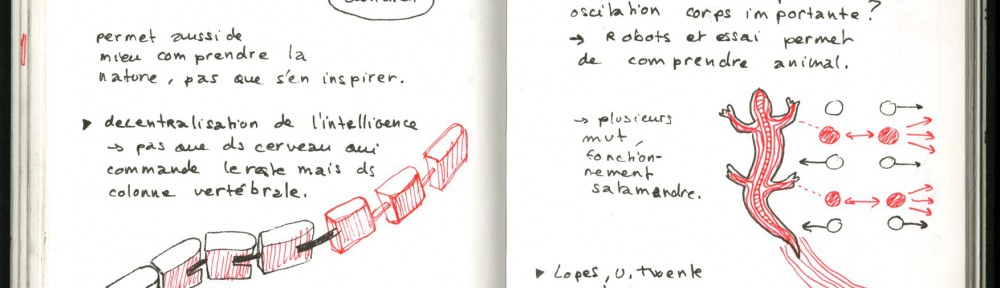 permet aussi de
mieu comprendre la
nature, pas que s'en inspirer.
▸ decentralisation de l'intelligence
→ pas que ds cerveau qui
commande le reste mais ds
colonne vertébrale.
oscilation corps importante?
→ Robots et essai permet
de comprendre animal.
→ plusieurs
mut,
fonction-
nement
salamandre.
▸ Lopes, U. twente